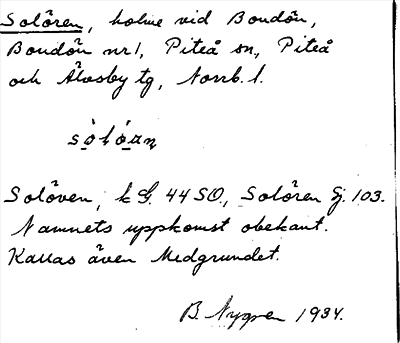 Solören, holme vid Bondön,
Bondön nr 1, Piteå sn, Piteå
och Älvsby tg, Norrb. l.
Solöven, k G. 44 SO., Solören Gj. 103.
Namnets uppkomst obekant.
Kallas även Medgrundet.
B. Nygren 1934.